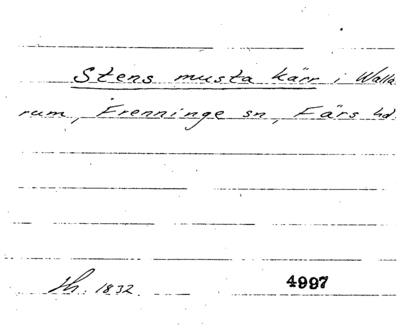 Stens musta kärr i Walla
rum, Frenninge sn, Färs hd.
Sh. 1832. 4997